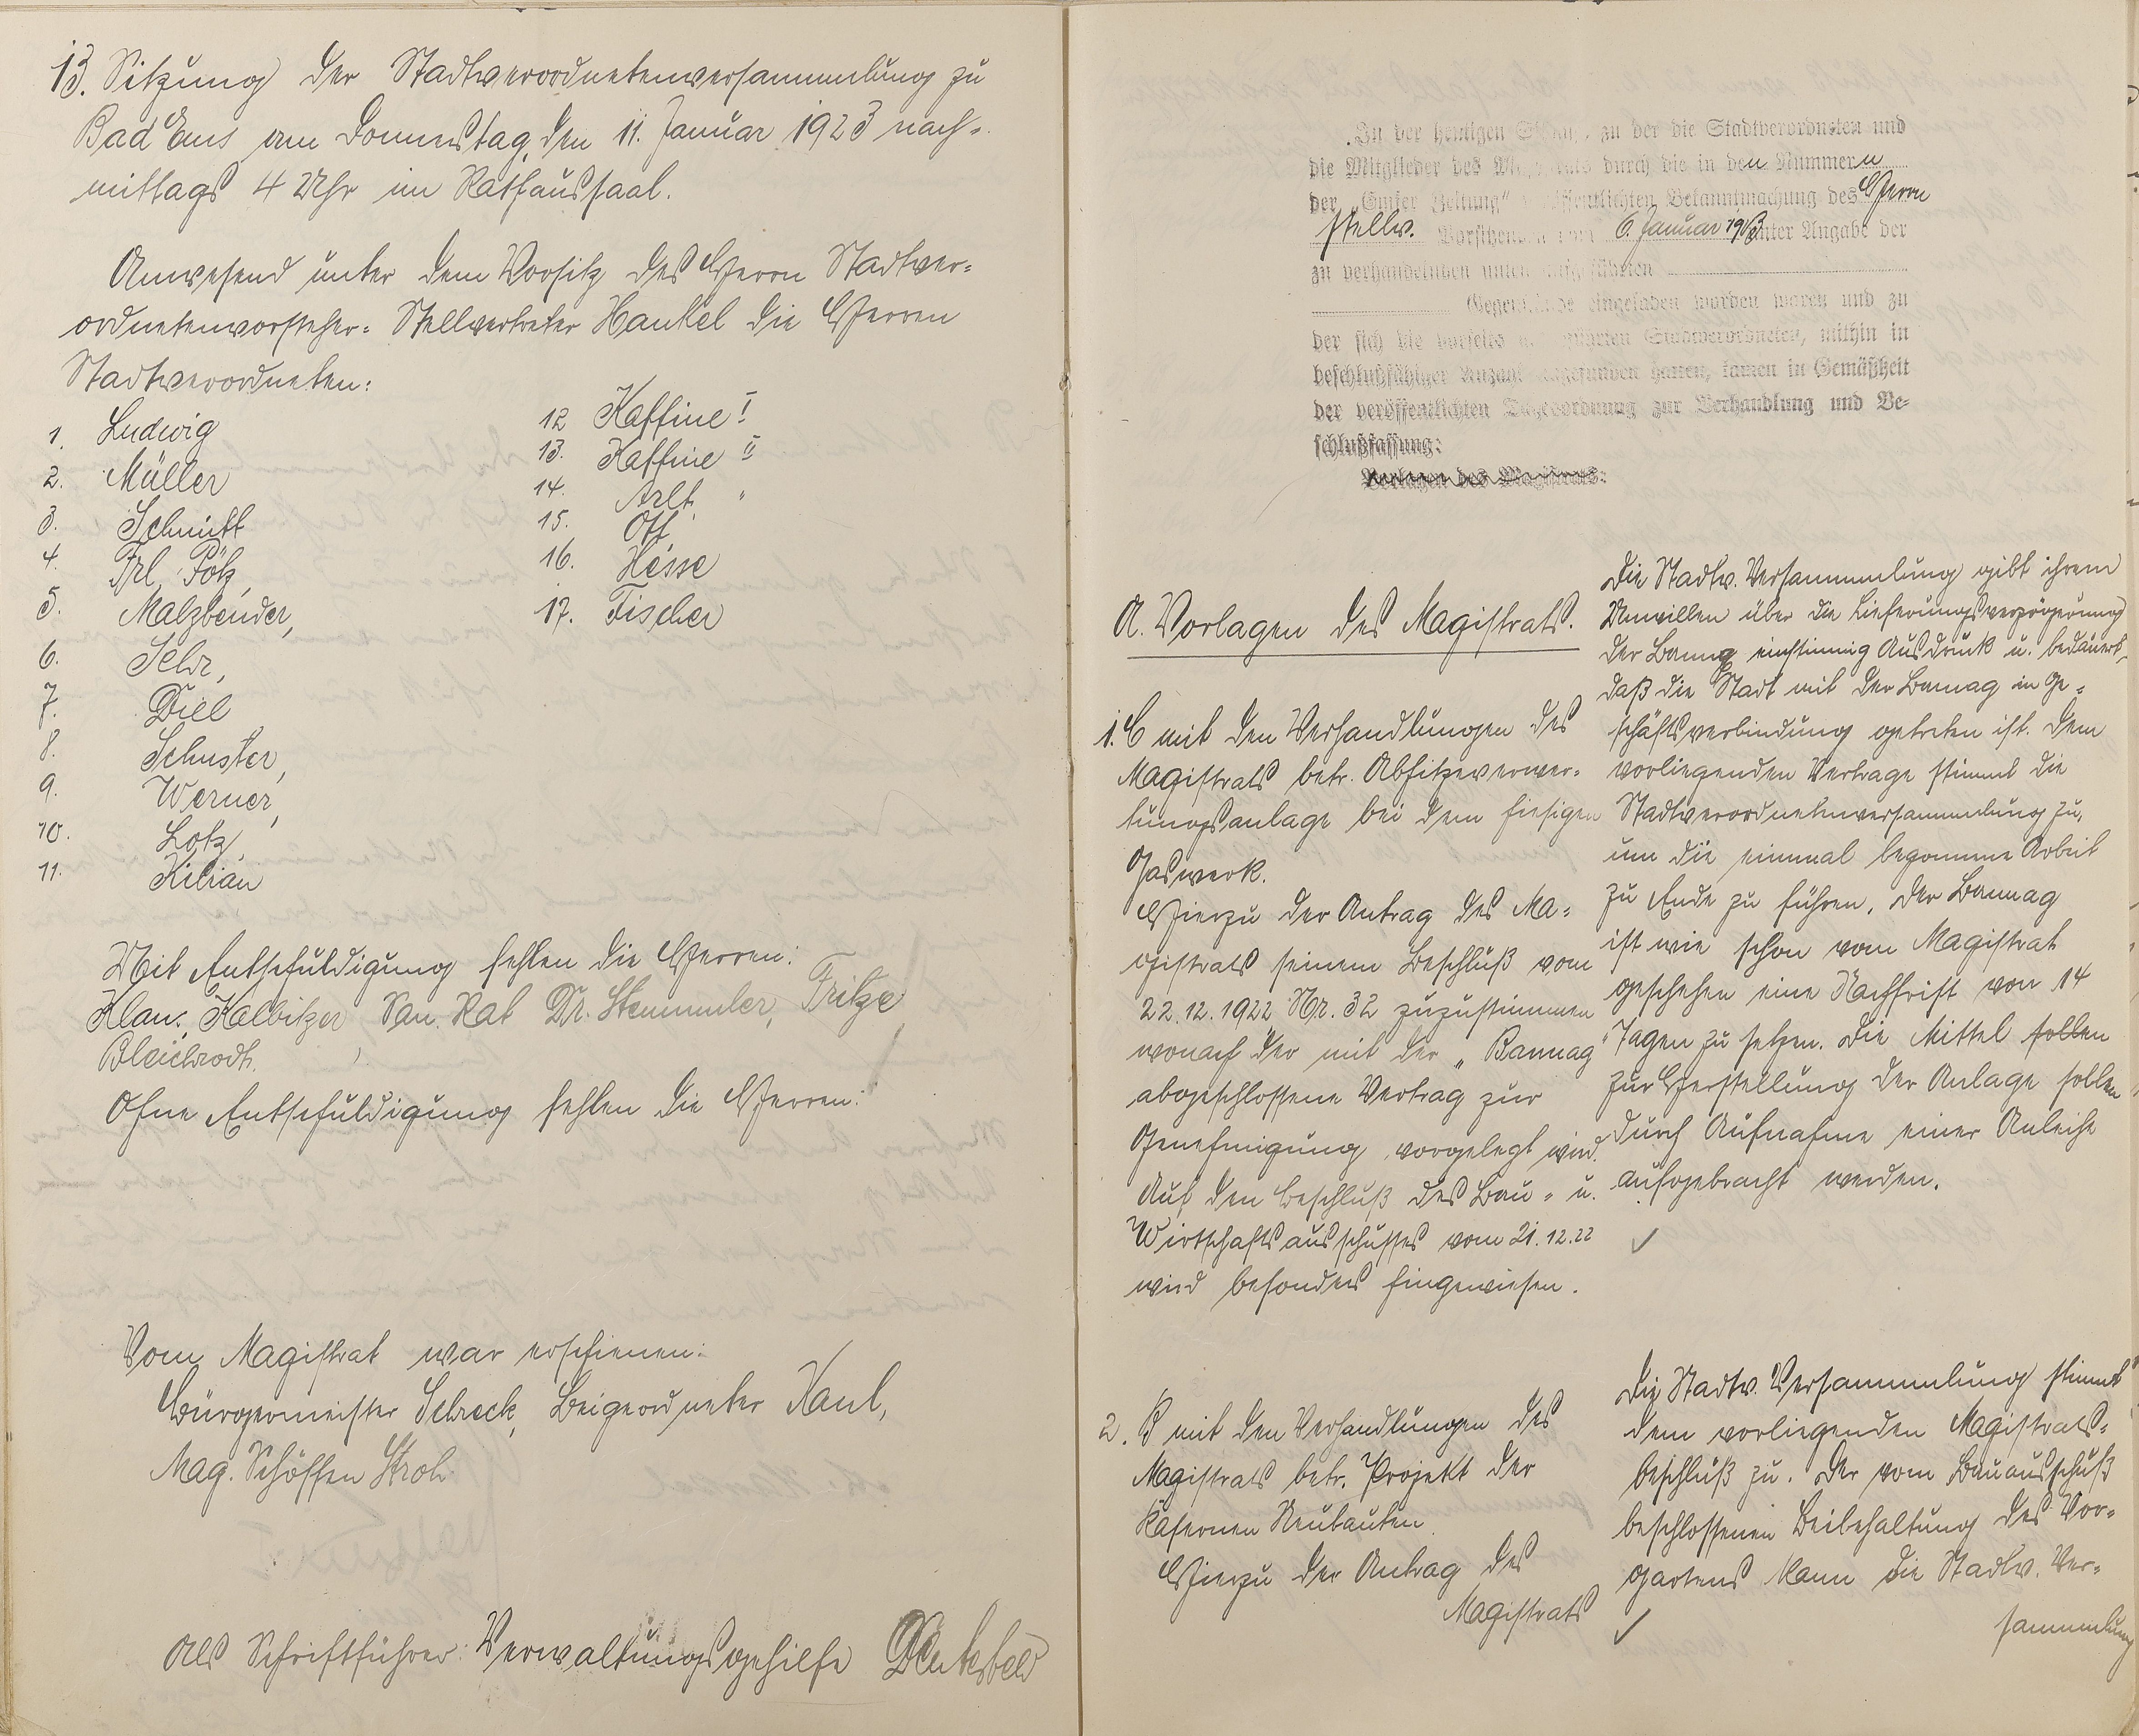 13. Sitzung der Stadtverordnetenversammlung zu
Bad Ems am Donnerstag, den 11. Januar 1923 nach-
mittags 4 Uhr im Rathaussaal.
Anwesend unter dem Vorsitz des Herrn Stadtver-
ordnetenvorsteher-Stellvertreter Hankel die Herren
Stadtverordneten:
1. Ludwig
2. Müller
3. Schmitt
4. Frl. Pötz,
5. Malzbender,
6. Sehr,
7. Diel
8. Schuster,
9. Werner,
10. Lotz,
11. Kilian
12 Kaffine I
13. Kaffine II
14. Arlt.
15. Ott
16. Hesse
17. Fischer
Mit Entschuldigung fehlen die Herren:
Klan., Kalbitzer San. Rat Dr. Stemmler, Fritze
Bleichrodt.
Ohne Entschuldigung fehlen die Herren:
Vom Magistrat war erschienen:
Bürgermeister Schreck, Beigeordneter Kaul,
Mag. Schöffen Stroh
Als Schriftführer: Verwaltungsgehilfe
In der heutigen zu der die Stadtverordneten und
die Mitglieder des durch die in den Nummern
der "Emser Zeitung" veröffentlichten Bekanntmachung des Herrn
stellv. Vorsitzenden vom 6. Januar 1923 unter Angabe der
zu verhandelnden unten aufgeführten
Gegenstände eingeladen worden waren und zu
der sich die vorseits Stadtverordneten, mithin in
beschlußfähiger Anzahl eingefunden hatten, kamen in Gemäßheit
der veröffentlichten Tagesordnung zur Verhandlung und Be-
schlußfassung:
Vorlagen des Magistrats:
A. Vorlagen des Magistrats.
1. C mit den Verhandlungen des
Magistrats betr. Abhitzeverwer-
tungsanlage bei dem hiesigen
Gaswerk.
Hierzu der Antrag des Ma-
gistrats seinem Beschluß vom
22.12.1922 Nr. 32 zuzustimmen
wonach der mit der „Bamag"
abgeschlossene Vertrag zur
Genehmigung vorgelegt wird.
Auf den Beschluß des Bau- u.
Wirtschaftsausschusses vom 21.12.22
wird besonders hingewiesen.
Die Stadtv. Versammlung gibt ihrem
Unwillen über die Lieferungsverzögerung
der Bamag einstimmig Ausdruck u. bedauert,
daß die Stadt mit der Bamag in Ge-
schäftsverbindung getreten ist. Dem
vorliegenden Vertrage stimmt die
Stadtverordnetenversammlung zu,
um die einmal begonnene Arbeit
zu Ende zu führen. Der Bamag
ist wie schon vom Magistrat
geschehen eine Nachfrist von 14
Tagen zu setzen. Die Mittel sollen
zur Herstellung der Anlage sollen
durch Aufnahme einer Anleihe
aufgebracht werden.
2. B mit den Verhandlungen des
Magistrats betr. Projekt der
Kasernen Neubauten.
Hierzu der Antrag des
Magistrats
Die Stadtv. Versammlung stimmt
dem vorliegenden Magistrats-
beschluß zu. Der vom Bauausschuß
beschlossenen Beibehaltung des Vor-
gartens kann die Stadtv. Ver-
sammlung